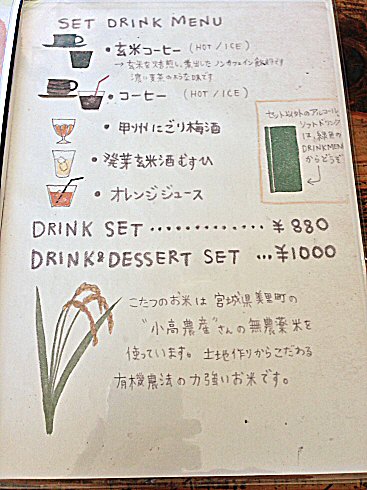 SET DRINK MENU
・玄米コーヒー (HOT / ICE)
→ 玄米を焙煎し、煮出したノンカフェイン飲料です
濃い麦茶のような味です
・コーヒー (HOT / ICE)
・甲州にごり梅酒
・発芽玄米酒むすひ
・オレンジジュース
セット以外のアルコール、
ソフトドリンク
は、緑色の
DRINKMEN
からどうぞ
DRINK SET ・・・・・・・・・・・・・ ¥880
DRINK&DESSERT SET ・・・¥1000
こたつのお米は 宮城県美里町の
"小高農産"さんの無農薬米を
使っています。土地作りからこだわる
有機農法の力強いお米です。